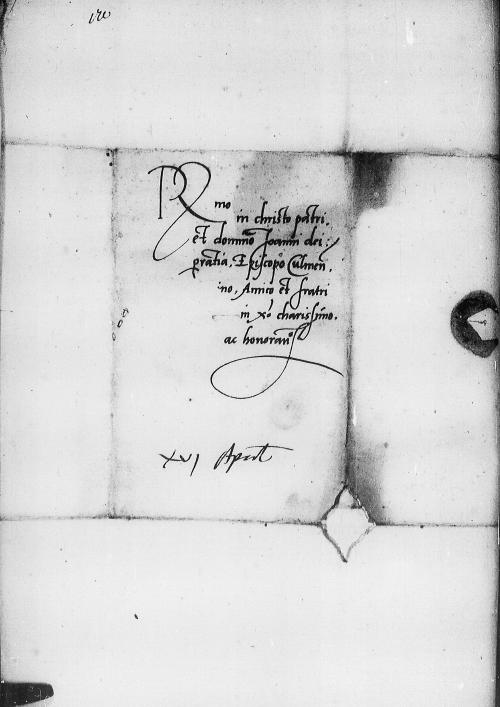 Rmo
in christo patri.
et domino Joanni dei
gratia. Episcopo Culmen
ino, Amico et fratri
in xo charissimo.
ac honoran
XVI